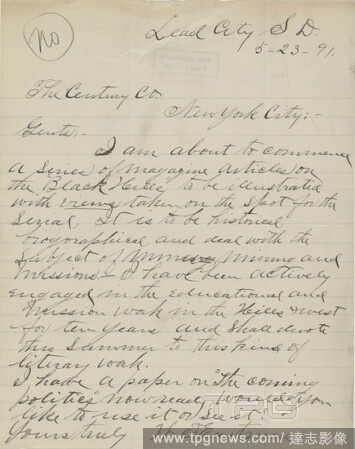 No
Lead City S.D.
5-23-91.
The Century Co.
New York City:-
Gents:-
I am about to commence
a series of magazine articles on
the Black Hills, to be illustrated
with views taken on the spot for the
serial. It is to be historical
biographical and deal with the
subject of mining and
missions - I have been actively
engaged in the educational and
mission work in the Hills & west
for ten years and shall devote
this summer to this kind of
literary work.
I have a paper on "The coming
politics" now ready. Would you
like to use it or see it.
Yours truly
www.tpgnews.com/達志影像